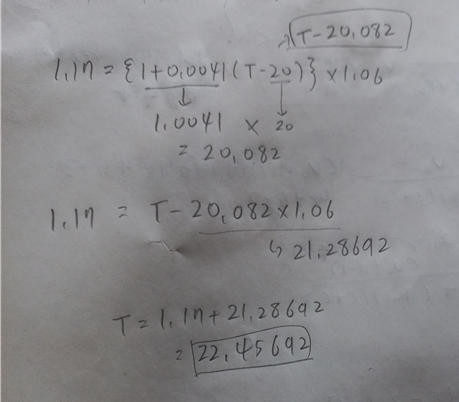 T-20,082
1.17 = {1+0.0041(T-20)} ×1.06
1.0041 × 20
= 20,082
1.17 = T- 20,082×1.06
↳ 21.28692
T = 1.17+21.28692
= 22.45692